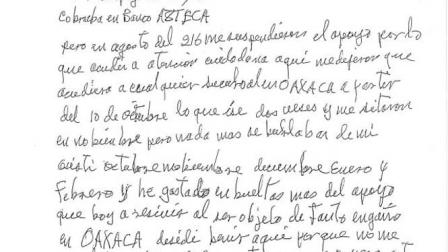 cobraba en Banco AZTECA
pero en agosto del 216 me suspendieron el apoyo por lo
que acudi a atencion ciudadana aqui me dijeron que
acudiera a cualquier sucursal en OAXACA a partir
del 10 de octubre lo que ise dos veses y me sitaron
en nobiembre pero nada mas se burlaban de mi
asisti octubre nobiembre deciembre Enero y
febrero y he gastado en bueltas mas del apoyo
que boy a resivir al ser objeto de tanto engaño
en OAXACA desidi benir aqui porque no me